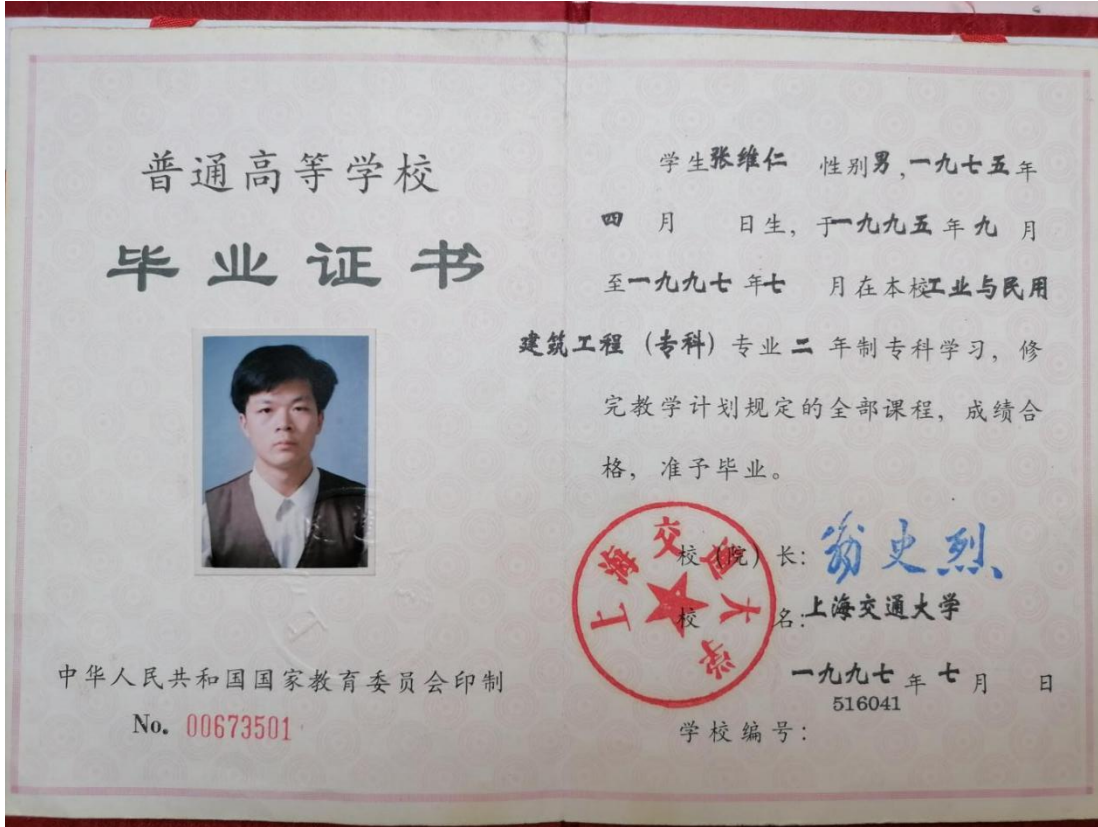 普通高等学校
毕业证书
中华人民共和国国家教育委员会印制
No. 00673501
学生张维仁 性别男,一九七五年
四 月 日生, 于一九九五年九 月
至一九九七年七 月在本校工业与民用
建筑工程(专科)专业二 年制专科学习, 修
完教学计划规定的全部课程, 成绩合
格, 准予毕业。
校(院)长: 翁史烈
校 名: 上海交通大学
上海交通大学
一九九七年七月 日
516041
学校编号: